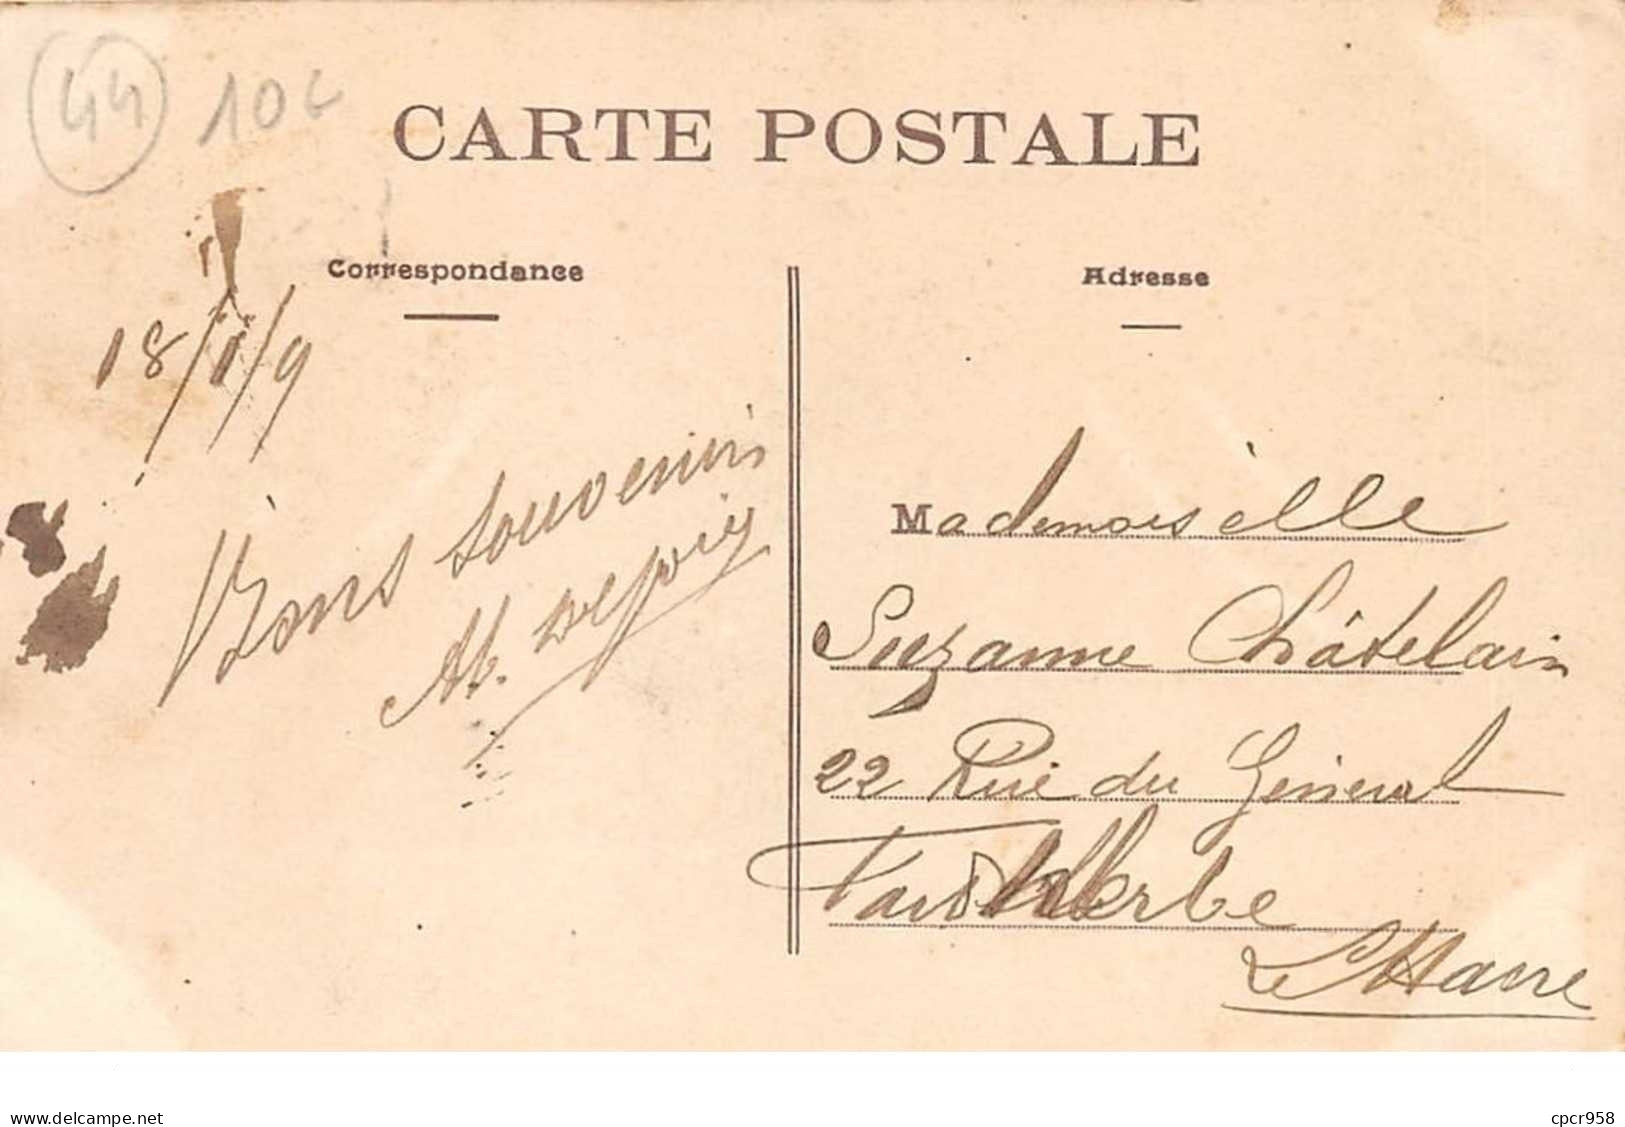 44 10
CARTE POSTALE
Correspondance
18/1/9
Bons souvenirs
Adresse
Mademoiselle
Suzanne Châtelain
22 Rue du Général
Faidherbe
Le Havre
delcampe.net
cpcr958